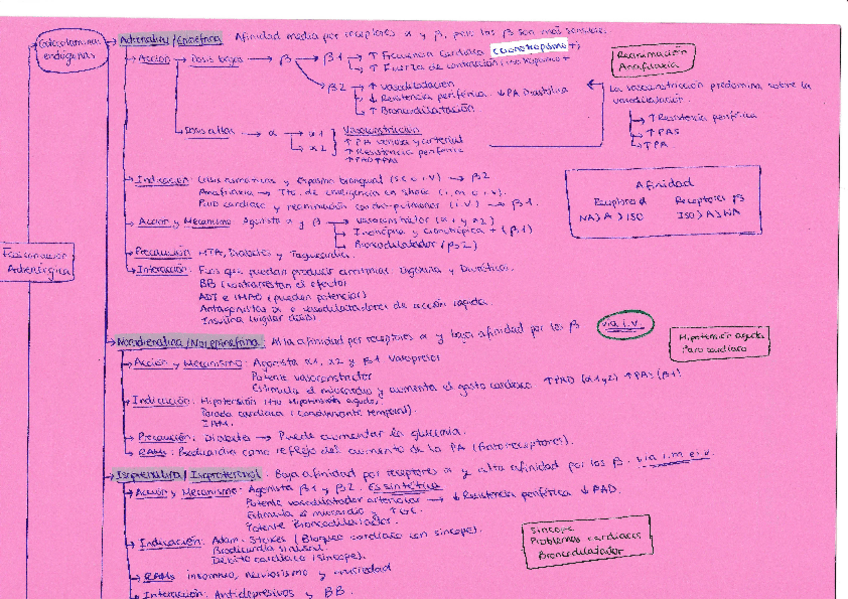 Catecolaminas endógenas
Adrenalina/Epinefrina: Afinidad media por receptores α y β, pero los β son más sensibles.
Acción → Dosis bajas → β → β1 → ↑ Frecuencia Cardiaca (cronotropismo +)
↑ Fuerza de contracción (inotropismo +
β2 → ↑ vasodilatación
↓ Resistencia periférica ↓ PA Diastólica
↑ Broncodilatación
Reanimación
Anafilaxia
La vasoconstricción predomina sobre la
vasodilatación.
↑ Resistencia periférica
↑ PAS
↑ PA
Dosis altas → α → α1
α2
Vasoconstricción
↑ PA venosa y arterial
↑ Resistencia periférica
Indicación: Crisis asmáticas y Espasmo bronquial (s.c o i.v) → β2
Anafilaxia → Tto. de emergencia en shock (i.m o i.v).
Paro cardiaco y reanimación cardio-pulmonar (i.v) → β1.
Acción y Mecanismo: Agonista α y β → vasoconstrictor (α1 y α2)
Inotrópica y cronotrópica + (β1)
Broncodilatador (β2)
Afinidad
Receptores α
Receptores β
NA > A > ISO
ISO > A > NA
Precaución: HTA, Diabetes y Taquicardia.
Interacción: Fcos que puedan producir arritmias. Digoxina y Diuréticos.
BB (contrarrestan el efecto)
ADT e IMAO (pueden potenciar)
Antagonistas α o vasodilatadores de acción rápida.
Insulina
Adrenérgica
Noradrenalina/Norepinefrina: Alta afinidad por receptores α y baja afinidad por los β
via i.v.
Hipotensión aguda
Paro cardiaco
Acción y Mecanismo: Agonista α1, α2 y β1
Potente vasoconstrictor
Estimula el miocardio y aumenta el gasto cardiaco ↑PAD (α1 y 2) ↑PAS (β1)
Indicación: Hipotensión
Parada cardiaca (coadyuvante temporal).
IAM.
Precaución: Diabetes → Puede aumentar la glucemia.
RAMs: Bradicardia como reflejo del aumento de la PA (barorreceptores).
Isoprenalina/Isoproterenol: Baja afinidad por receptores α y alta afinidad por los β. via i.m e i.v.
Acción y Mecanismo: Agonista β1 y β2. Es sintético
Potente vasodilatador arteriolar → ↓ Resistencia periférica ↓ PAD.
Estimula el miocardio y ↑ GC.
Potente Broncodilatador.
Indicación: Adam-Stokes (Bloqueo cardiaco con síncope).
Bradicardia sinusal.
Débito cardiaco (síncope).
Síncope
Problemas cardiacos
Broncodilatador
RAMs insomnio, nerviosismo y ansiedad
Interacción: Antidepresivos y BB.